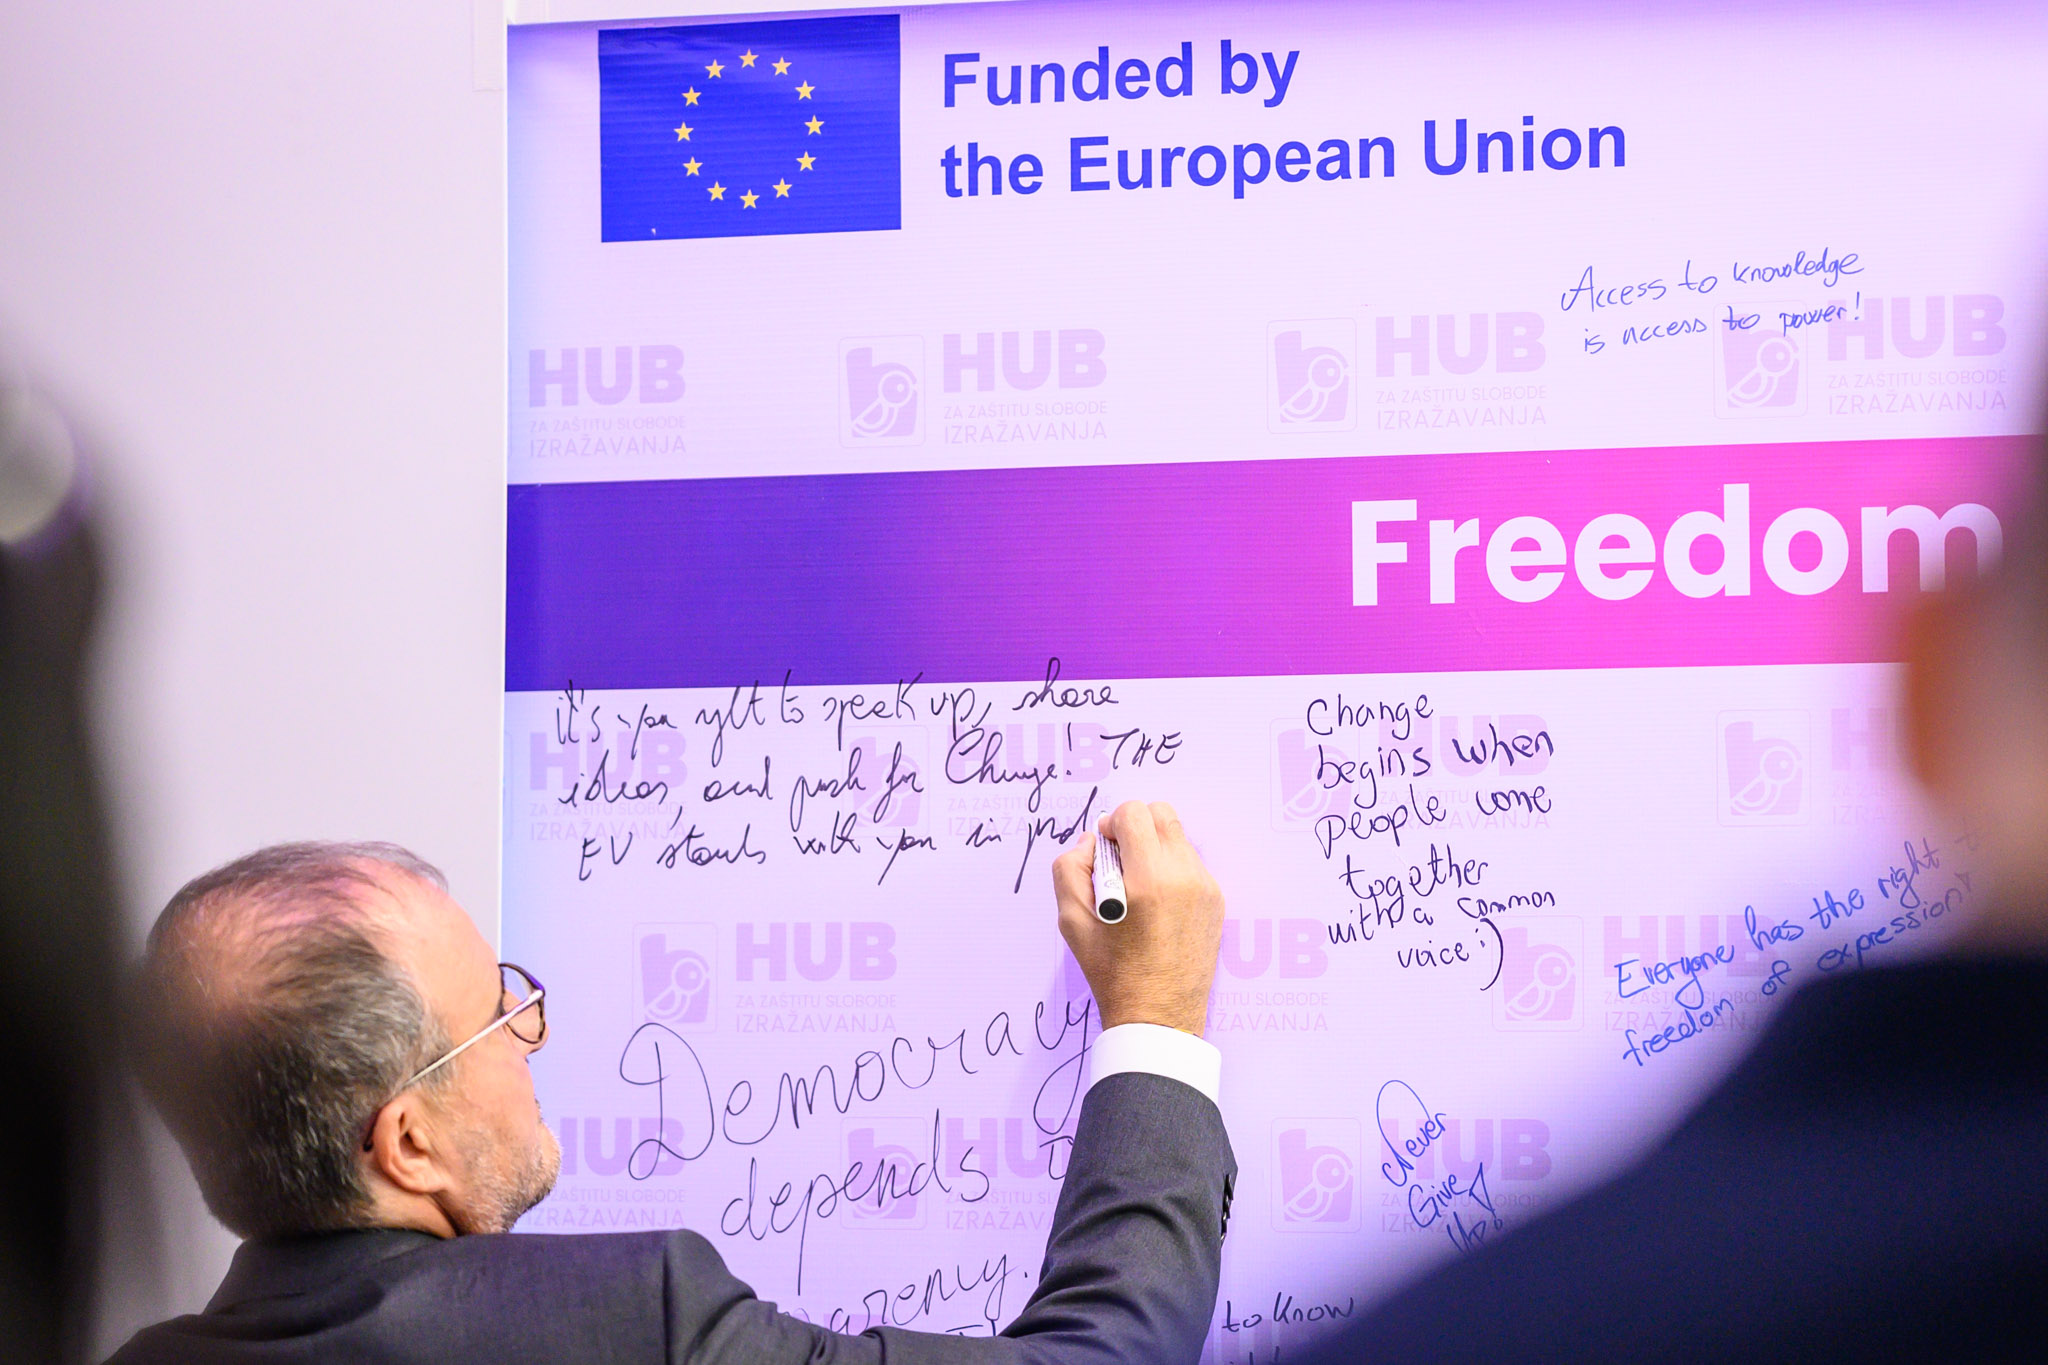 Funded by
the European Union
Access to knowledge
is access to power!
HUB
ZA ZAŠTITU SLOBODE
IZRAŽAVANJA
HUB
ZA ZAŠTITU SLOBODE
IZRAŽAVANJA
HUB
ZA ZAŠTITU SLOBODE
IZRAŽAVANJA
HUB
ZA ZAŠTITU SLOBODE
IZRAŽAVANJA
Freedom
it's your right to speak up, share
ideas, and push for Change! THE
EU stands with you in
Change
begins when
people come
together
with a common
voice :)
Everyone has the right
freedom of expression
HUB
ZA ZAŠTITU SLOBODE
IZRAŽAVANJA
Democracy
depends
Never
Give
Up!
to know